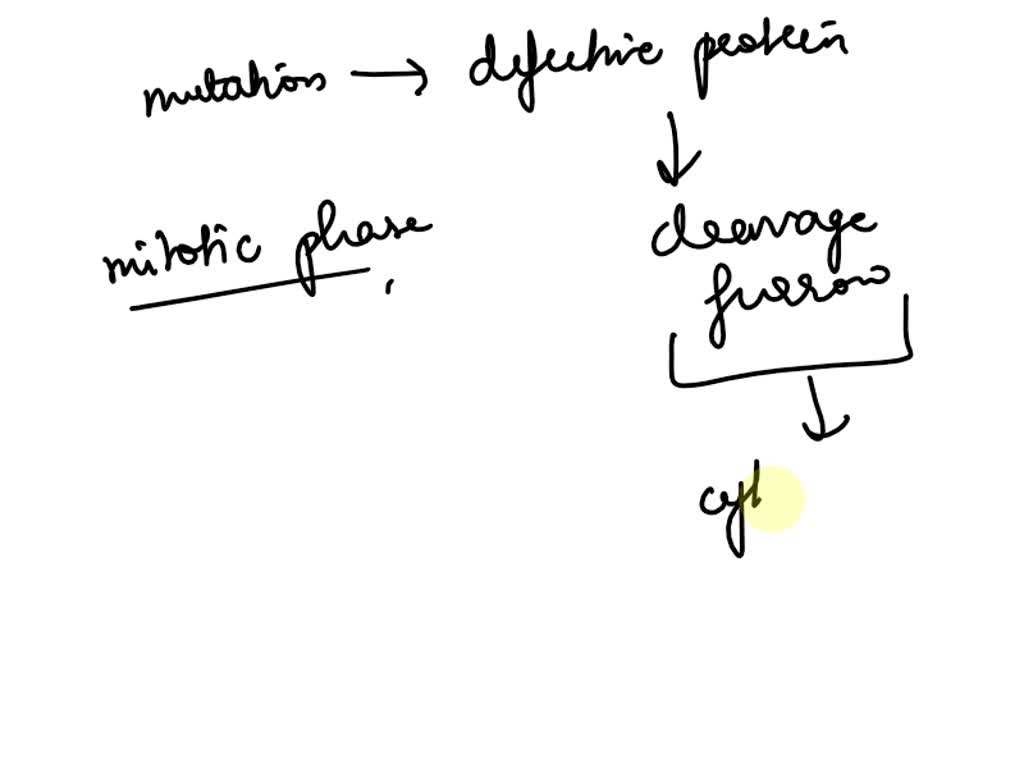 mutation → defective protein
↓
mitotic phase,
cleavage
furrow
↓
cyt